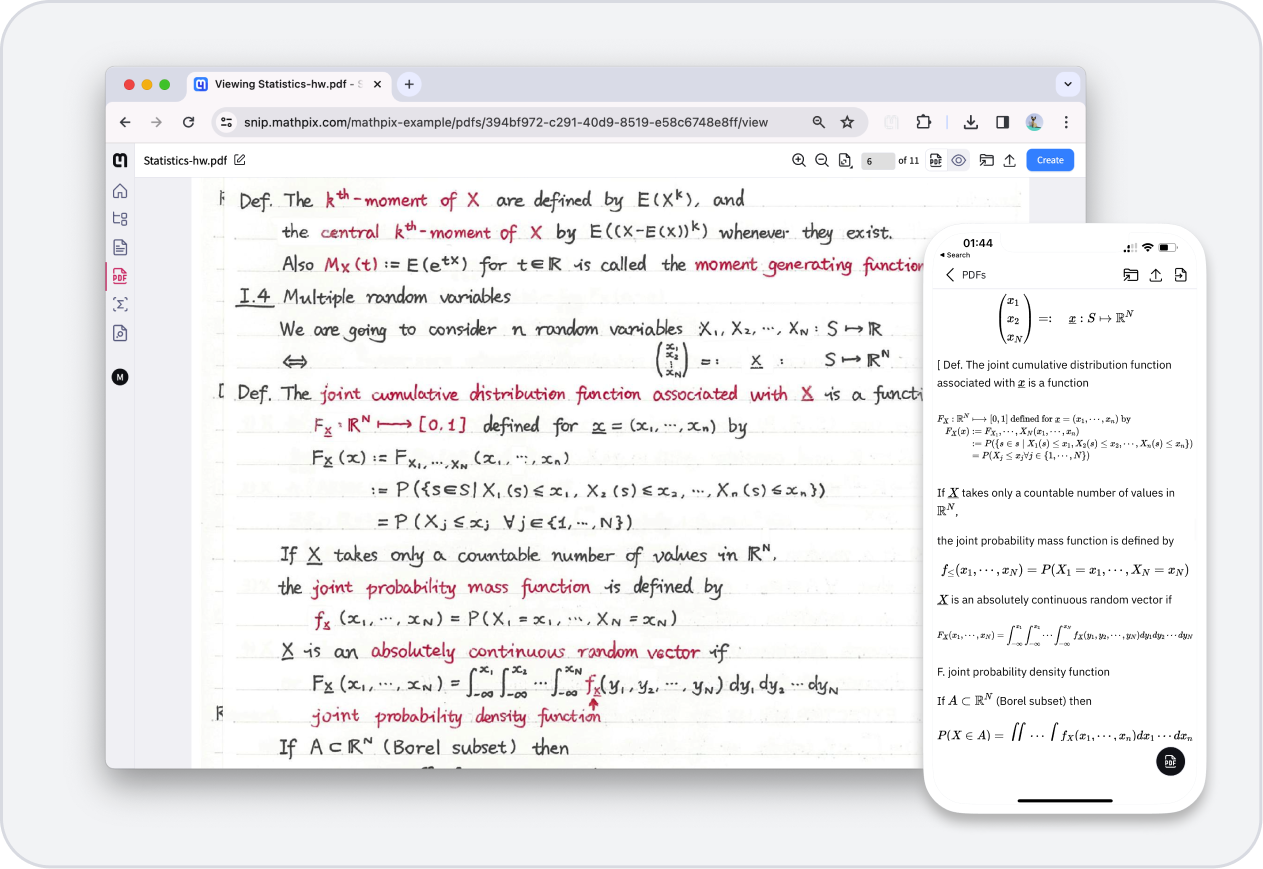 Viewing Statistics-hw.pdf - S
snip.mathpix.com/mathpix-example/pdfs/394bf972-c291-40d9-8519-e58c6748e8ff/view
Statistics-hw.pdf
6 of 11
PDF
Create
PDF
M
Def. The kᵗʰ-moment of X are defined by E(Xᵏ), and
the central kᵗʰ-moment of X by E((X-E(X))ᵏ) whenever they exist.
Also M_X(t) := E(e^{tX}) for t∈ℝ is called the moment generating function
I.4 Multiple random variables
We are going to consider n random variables X₁, X₂, ⋯, X_N : S ↦ ℝ
⇔ (x₁ x₂ ⋮ x_N) =: X : S ↦ ℝᴺ
[ Def. The joint cumulative distribution function associated with X is a functi
F_X : ℝᴺ ⟼ [0,1] defined for x = (x₁, ⋯, xₙ) by
F_X (x) := F_{X₁, ⋯, X_N} (x₁, ⋯, xₙ)
:= P({s∈S| X₁(s) ≤ x₁, X₂(s) ≤ x₂, ⋯, Xₙ(s) ≤ xₙ})
= P(X_j ≤ x_j ∀j∈{1, ⋯, N})
If X takes only a countable number of values in ℝᴺ,
the joint probability mass function is defined by
f_X (x₁, ⋯, x_N) = P(X₁ = x₁, ⋯, X_N = x_N)
X is an absolutely continuous random vector if
F_X (x₁, ⋯, x_N) = ∫_{-∞}^{x₁} ∫_{-∞}^{x₂} ⋯ ∫_{-∞}^{x_N} f_X(y₁, y₂, ⋯, y_N) dy₁ dy₂ ⋯ dy_N
joint probability density function
If A ⊂ ℝᴺ (Borel subset) then
01:44
Search
PDFs
(x₁ x₂ x_N) =: x : S ↦ ℝᴺ
[ Def. The joint cumulative distribution function
associated with x is a function
F_X : ℝᴺ ⟼ [0, 1] defined for x = (x₁, ⋯, xₙ) by
F_X(x) := F_{X₁}, ⋯, X_N(x₁, ⋯, xₙ)
:= P({s ∈ s | X₁(s) ≤ x₁, X₂(s) ≤ x₂, ⋯, Xₙ(s) ≤ xₙ})
= P(X_j ≤ x_j∀j ∈ {1, ⋯, N})
If X takes only a countable number of values in
ℝᴺ,
the joint probability mass function is defined by
f_≤(x₁, ⋯, x_N) = P(X₁ = x₁, ⋯, X_N = x_N)
X is an absolutely continuous random vector if
F_X(x₁, ⋯, x_N) = ∫_{-∞}^{x₁} ∫_{-∞}^{x₂} ⋯ ∫_{-∞}^{x_N} f_X(y₁, y₂, ⋯, y_N)dy₁dy₂ ⋯ dy_N
F. joint probability density function
If A ⊂ ℝᴺ (Borel subset) then
P(X ∈ A) = ∬ ⋯ ∫ f_X(x₁, ⋯, xₙ)dx₁ ⋯ dxₙ
PDF